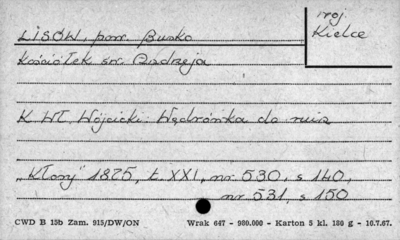 woj.
Kielce
LISÓW, pow. Busko
Kościółek św. Andrzeja
K. Wł. Wójcicki: Wędrówka do ruin
„Kłosy" 1875, t. XXI, nr 530, s 140,
nr 531, s 150
CWD B 15b Zam. 915/DW/ON Wrak 647 - 980.000 - Karton 5 kl. 180 g - 10.7.67.